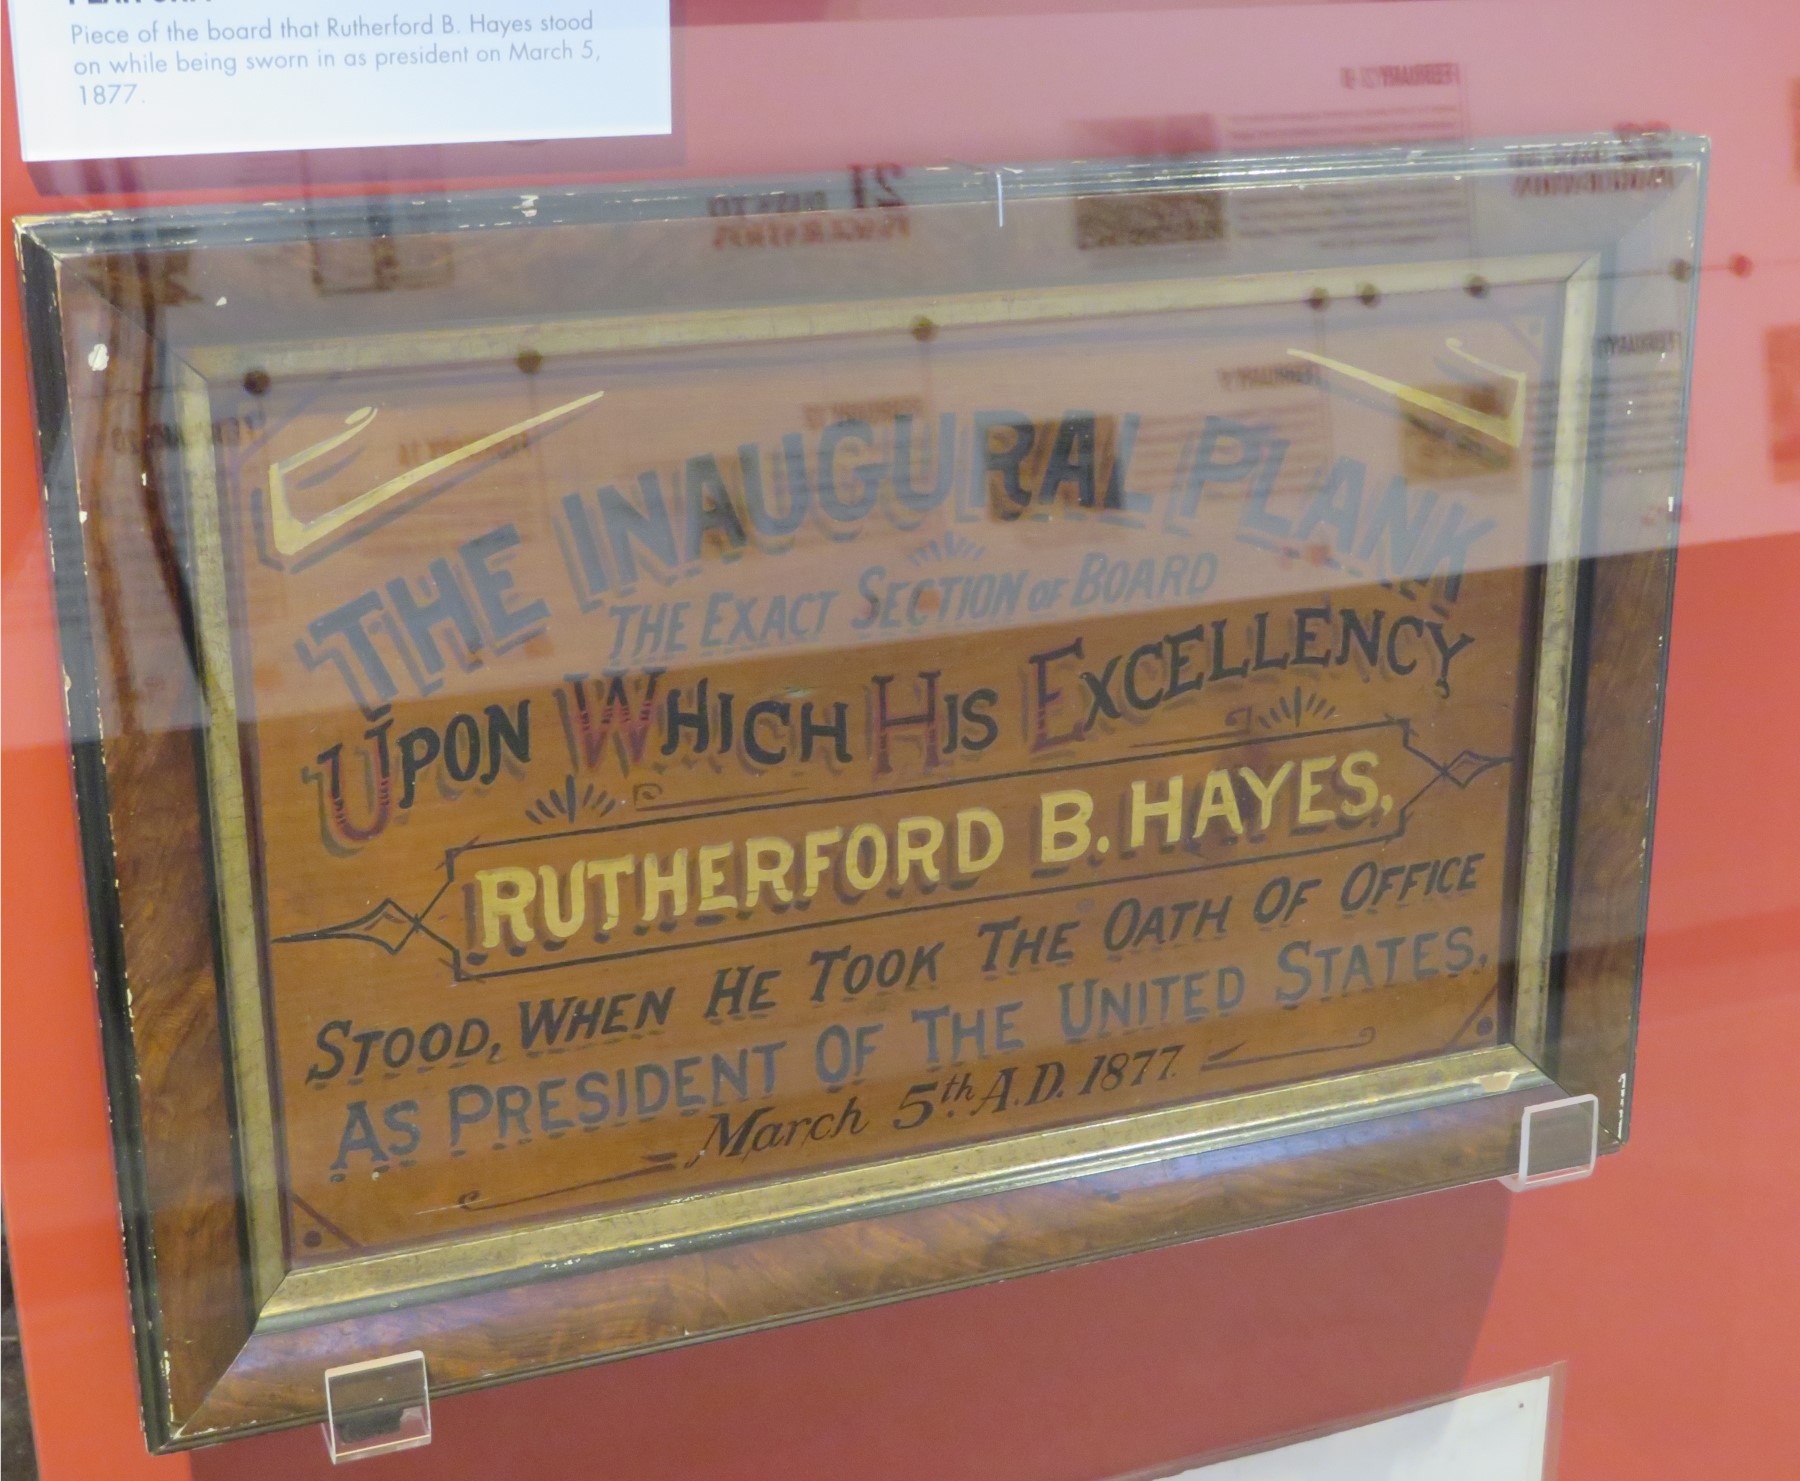 Piece of the board that Rutherford B. Hayes stood
on while being sworn in as president on March 5,
1877.
21 DAYS TO
INAUGURATION
THE INAUGURAL PLANK
THE EXACT SECTION OF BOARD
UPON WHICH HIS EXCELLENCY
RUTHERFORD B. HAYES,
STOOD, WHEN HE TOOK THE OATH OF OFFICE
AS PRESIDENT OF THE UNITED STATES,
March 5th A.D. 1877.